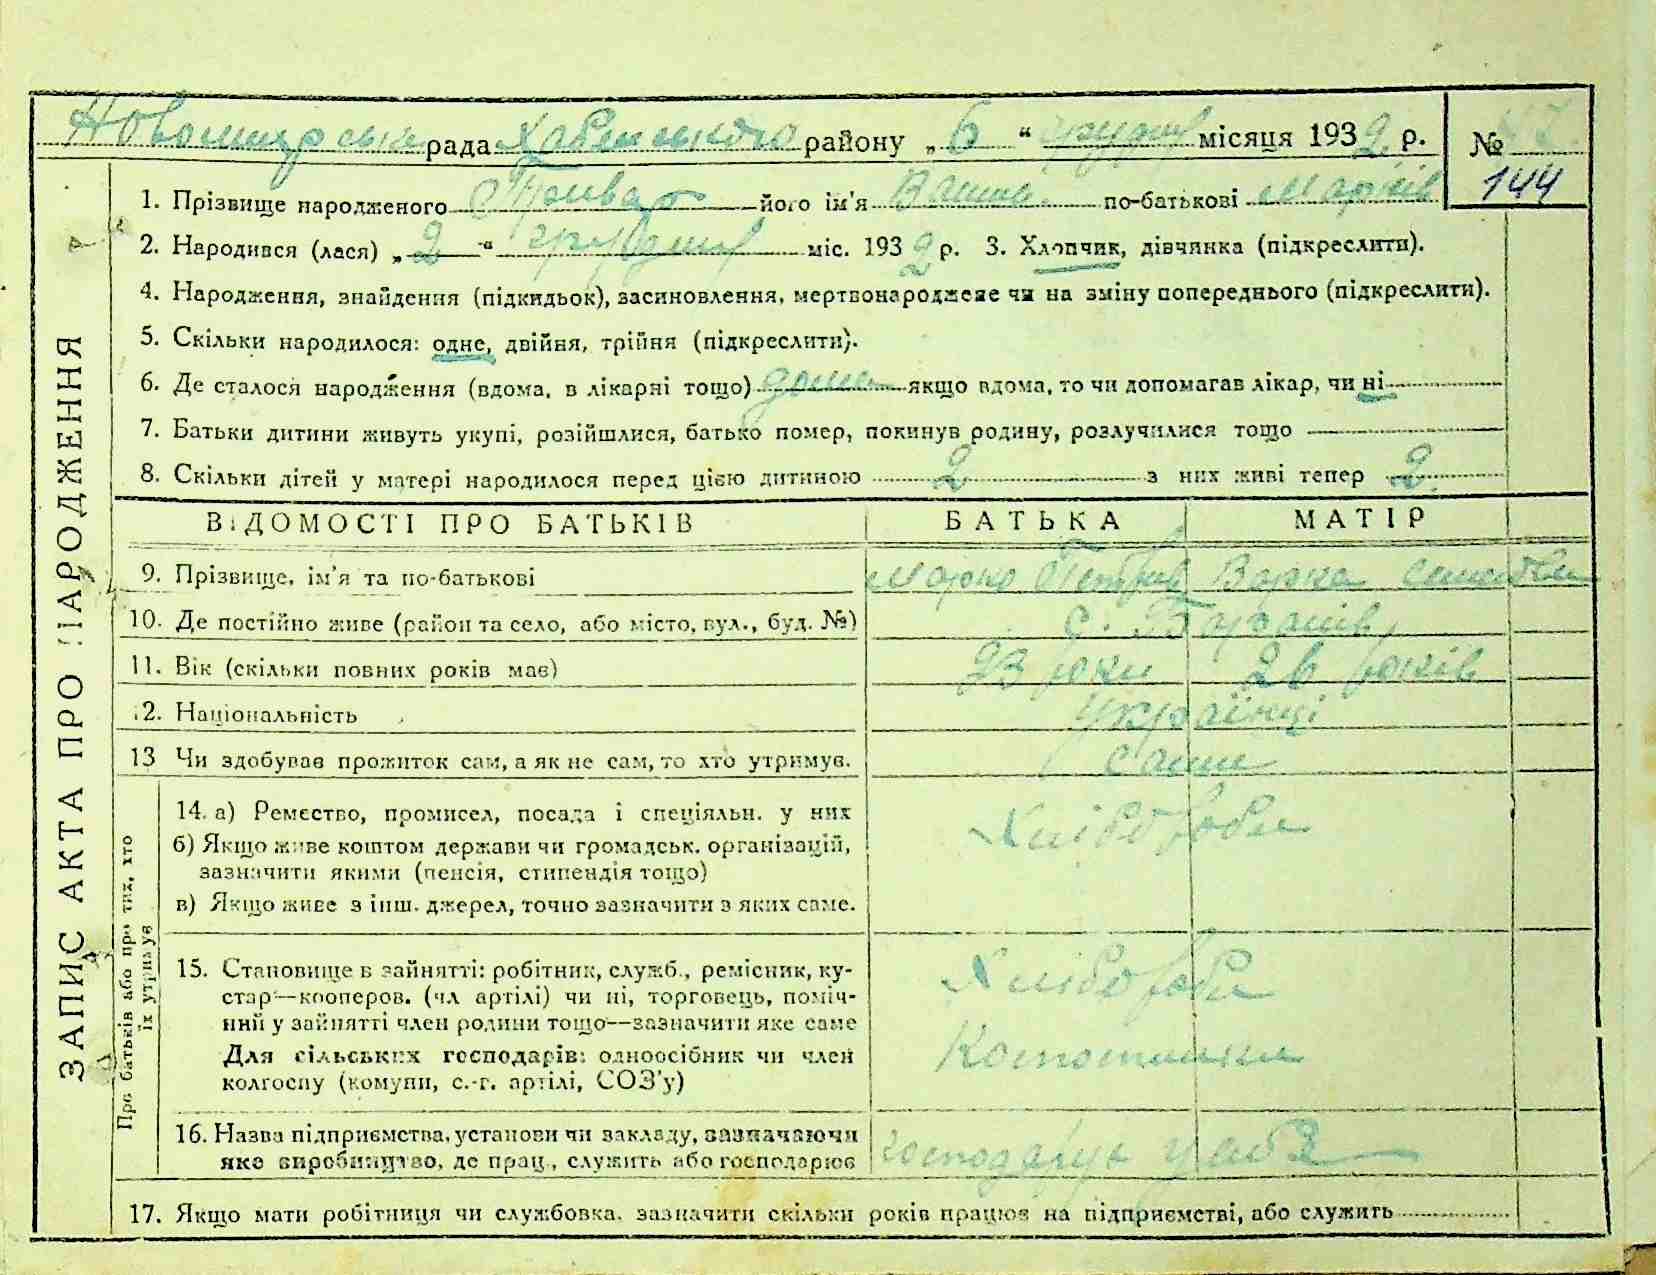 Новомирська рада Хабенського району „6“ грудня місяця 1932 р. №
144
1. Прізвище народженого його ім'я по-батькові Марків
2. Народився (лася) „2“ грудня міс. 1932 р. 3. Хлопчик, дівчинка (підкреслити).
4. Народження, знайдення (підкидьок), засиновлення, мертвонароджене чи на зміну попереднього (підкреслити).
5. Скільки народилося: одне, двійня, трійня (підкреслити).
6. Де сталося народження (вдома, в лікарні тощо) дома якщо вдома, то чи допомагав лікар, чи ні
7. Батьки дитини живуть укупі, розійшлися, батько помер, покинув родину, розлучилися тощо
8. Скільки дітей у матері народилося перед цією дитиною 2 з них живі тепер 2
ВІДОМОСТІ ПРО БАТЬКІВ БАТЬКА МАТІР
9. Прізвище, ім'я та по-батькові Марко Петрів Варка
10. Де постійно живе (район та село, або місто, вул., буд. №) с.
11. Вік (скільки повних років має) 23 роки 26 років
12. Національність Українці
13 Чи здобував прожиток сам, а як не сам, то хто утримув. сами
ЗАПИС АКТА ПРО НАРОДЖЕННЯ
Про батьків або про тих, хто їх утримує
14. а) Ремество, промисел, посада і спеціяльн. у них Хлібороби
б) Якщо живе коштом держави чи громадськ. організацій,
зазначити якими (пенсія, стипендія тощо)
в) Якщо живе з інш. джерел, точно зазначити з яких саме.
15. Становище в зайнятті: робітник, служб., ремісник, ку-
стар—кооперов. (чл артілі) чи ні, торговець, поміч- Хлібороби
ний у зайнятті член родини тощо—зазначити яке саме
Для сільських господарів: одноосібник чи член
колгоспу (комуни, с.-г. артілі, СОЗ'у)
16. Назва підприємства, установи чи закладу, зазначаючи
яке виробництво, де прац., служить або господарює господарують у себе
17. Якщо мати робітниця чи службовка, зазначити скільки років працює на підприємстві, або служить